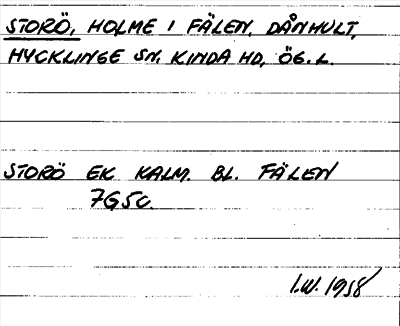 STORÖ, HOLME I FÄLEN, DÅNHULT,
HYCKLINGE SN, KINDA HD, ÖG. L.
STORÖ EK KALM. BL. FÄLEN
7G5c.
I.W. 1958